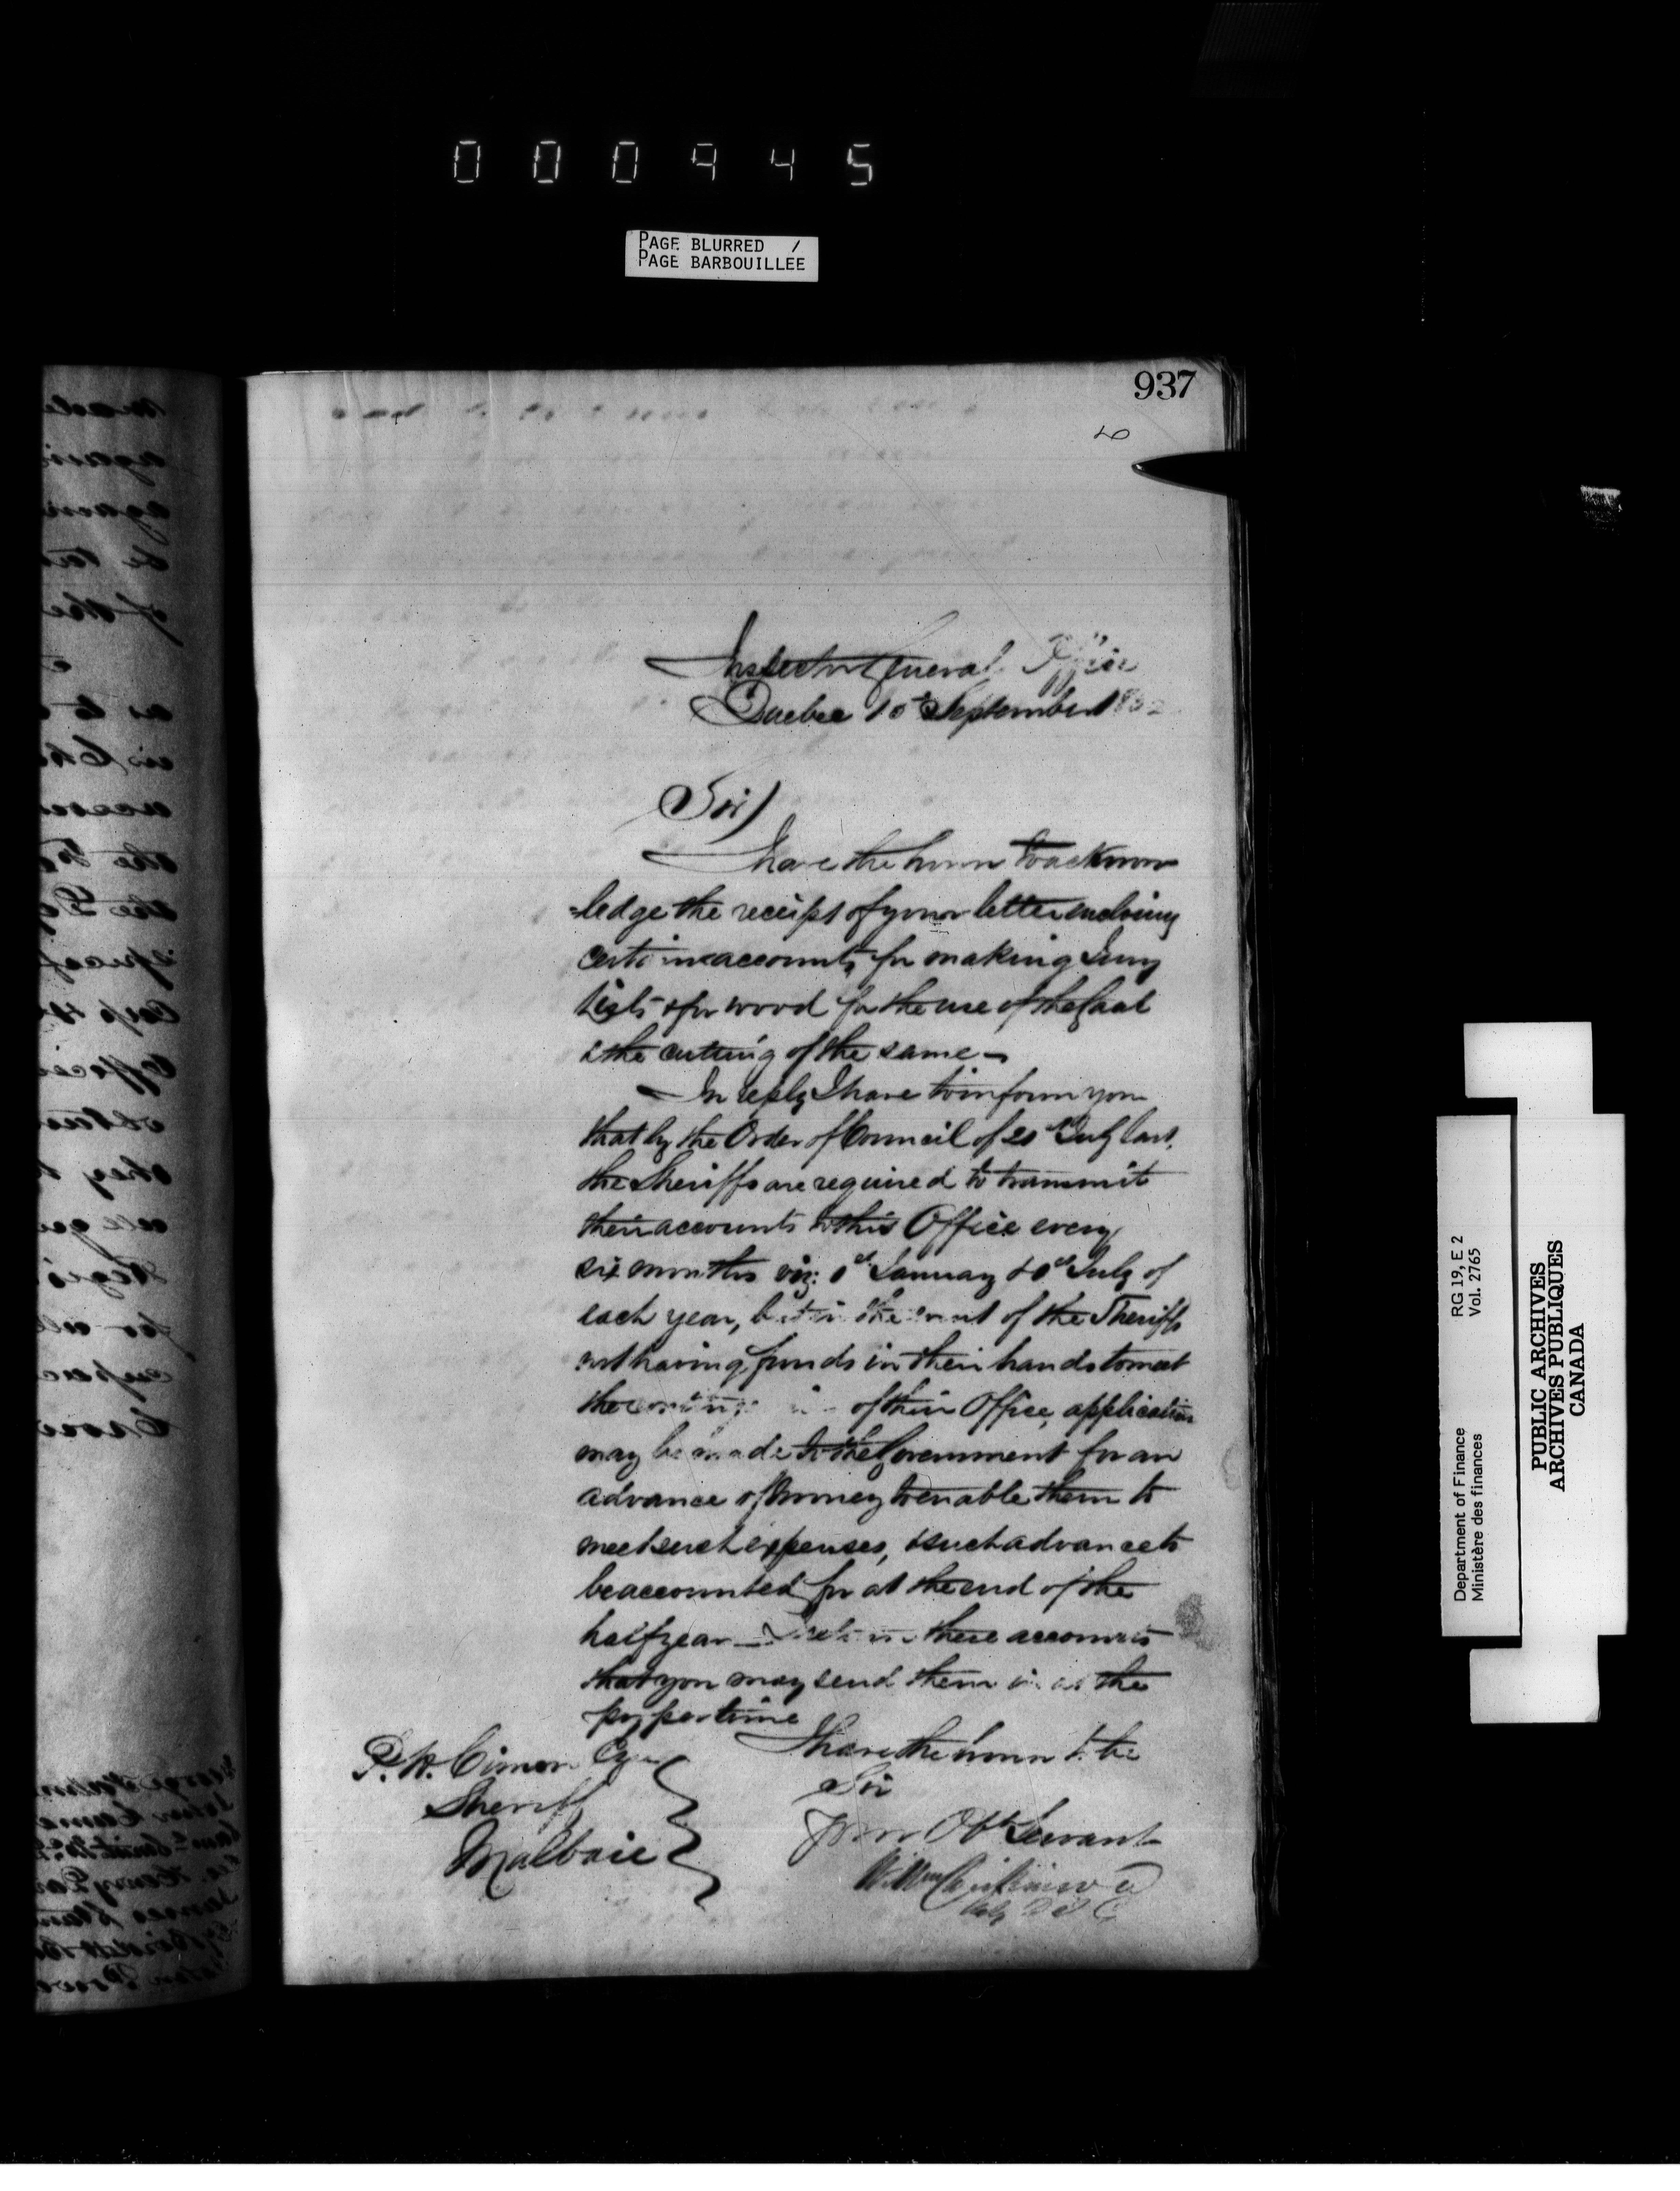 000945
PAGE BLURRED /
PAGE BARBOUILLÉE
937
Inspector General Office
Quebec 10th September
Sir)
I have the honor to acknow
=ledge the receipt of your letter enclosing
certain accounts for making Jury
Lists & for wood for the use of the Gaol
& the cutting of the same—
In reply I have to inform you
that by the Order of Council of 20th July last,
the Sheriffs are required to transmit
their accounts to this Office every
six months viz: 1st January & 1st July of
each year, but in the event of the Sheriffs
not having funds in their hands to meet
the of their Office application
may be made to the Government for an
advance of money to enable them to
meet such expenses, & such advance to
be accounted for at the end of the
half year— I return these accounts
that you may send them in at the
proper time
I have the honor to be
Sir
Your Obt Servant
P. H. Cimon Esq
Sheriff
Malbaie
RG 19, E 2
Vol. 2765
Department of Finance
Ministère des finances
PUBLIC ARCHIVES
ARCHIVES PUBLIQUES
CANADA